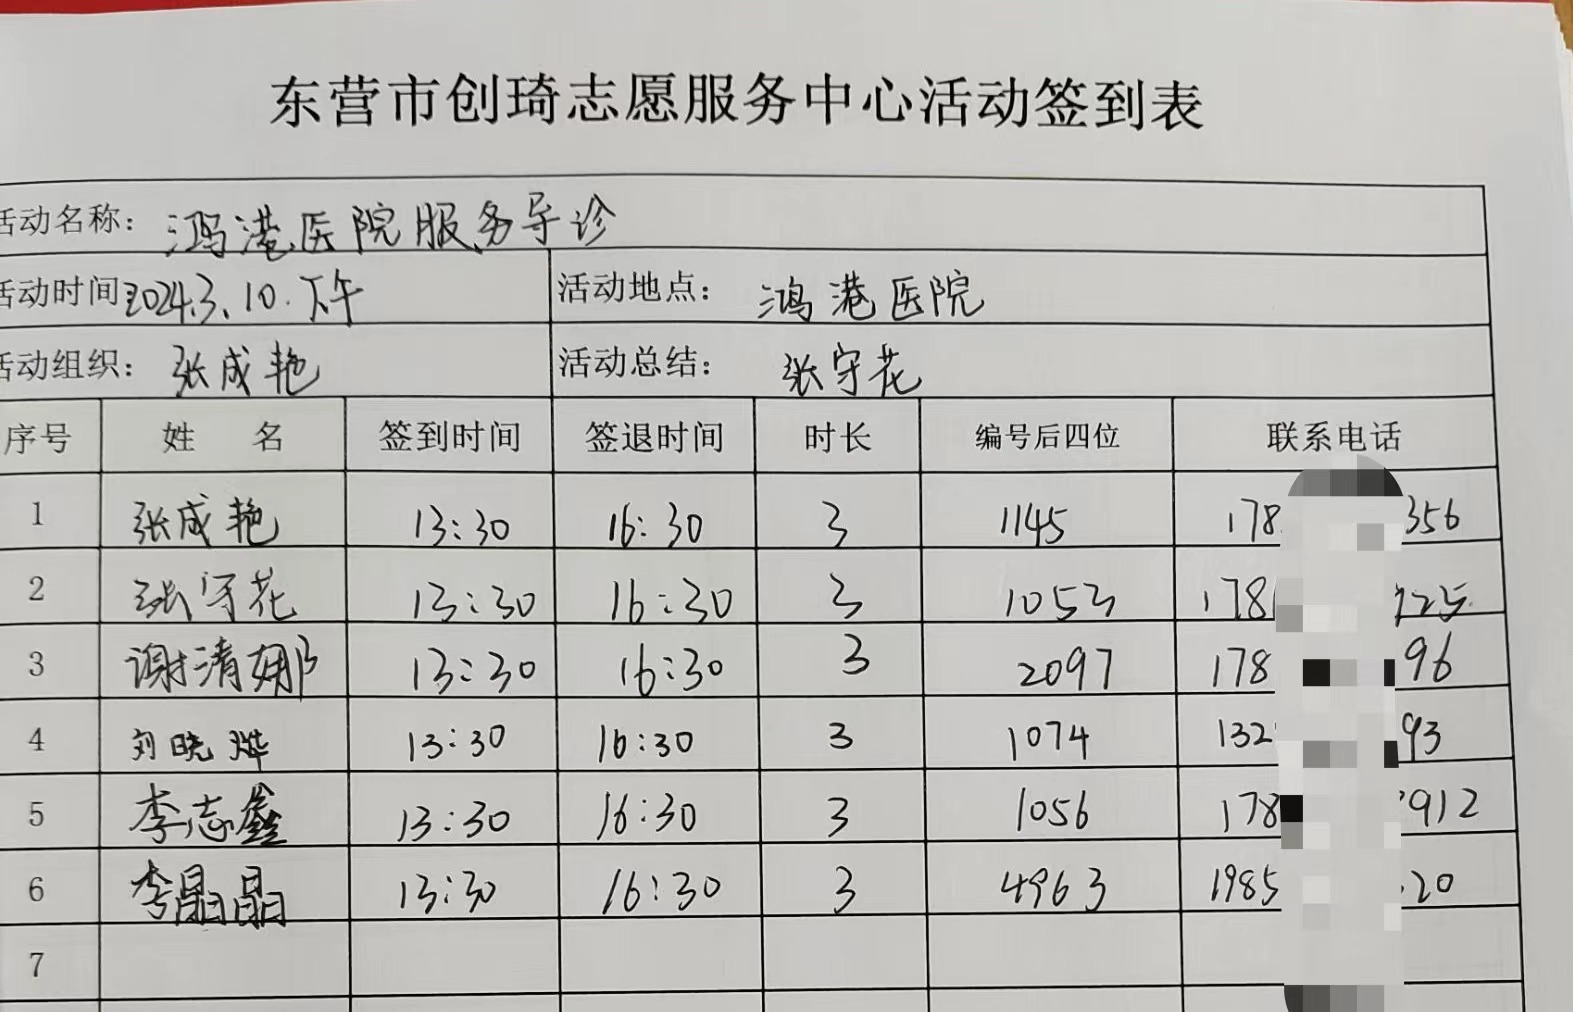 东营市创琦志愿服务中心活动签到表
活动名称: 鸿港医院服务导诊
活动时间:2024.3.10.下午 活动地点: 鸿港医院
活动组织: 张成艳 活动总结: 张守花
序号 姓 名 签到时间 签退时间 时长 编号后四位 联系电话
1 张成艳 13:30 16:30 3 1145 178 356
2 张守花 13:30 16:30 3 1053 178 925
3 谢清娜 13:30 16:30 3 2097 178 96
4 刘晓烨 13:30 16:30 3 1074 132 93
5 李志鑫 13:30 16:30 3 1056 178 912
6 李晶晶 13:30 16:30 3 4963 1985 20
7